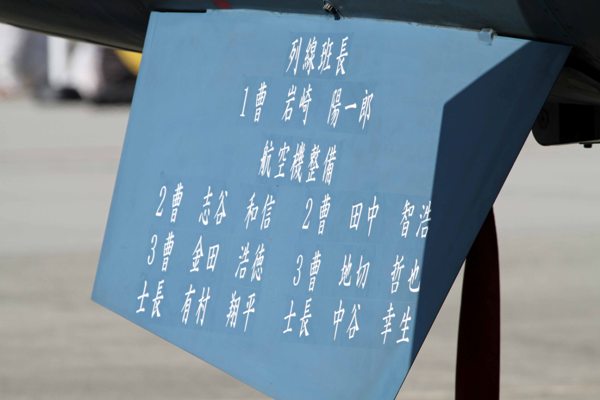 列線班長
1曹 岩崎 陽一郎
航空機整備
2曹 志谷 和信 2曹 田中 智浩
3曹 金田 浩徳 3曹 地切 哲也
士長 有村 翔平 士長 中谷 幸生